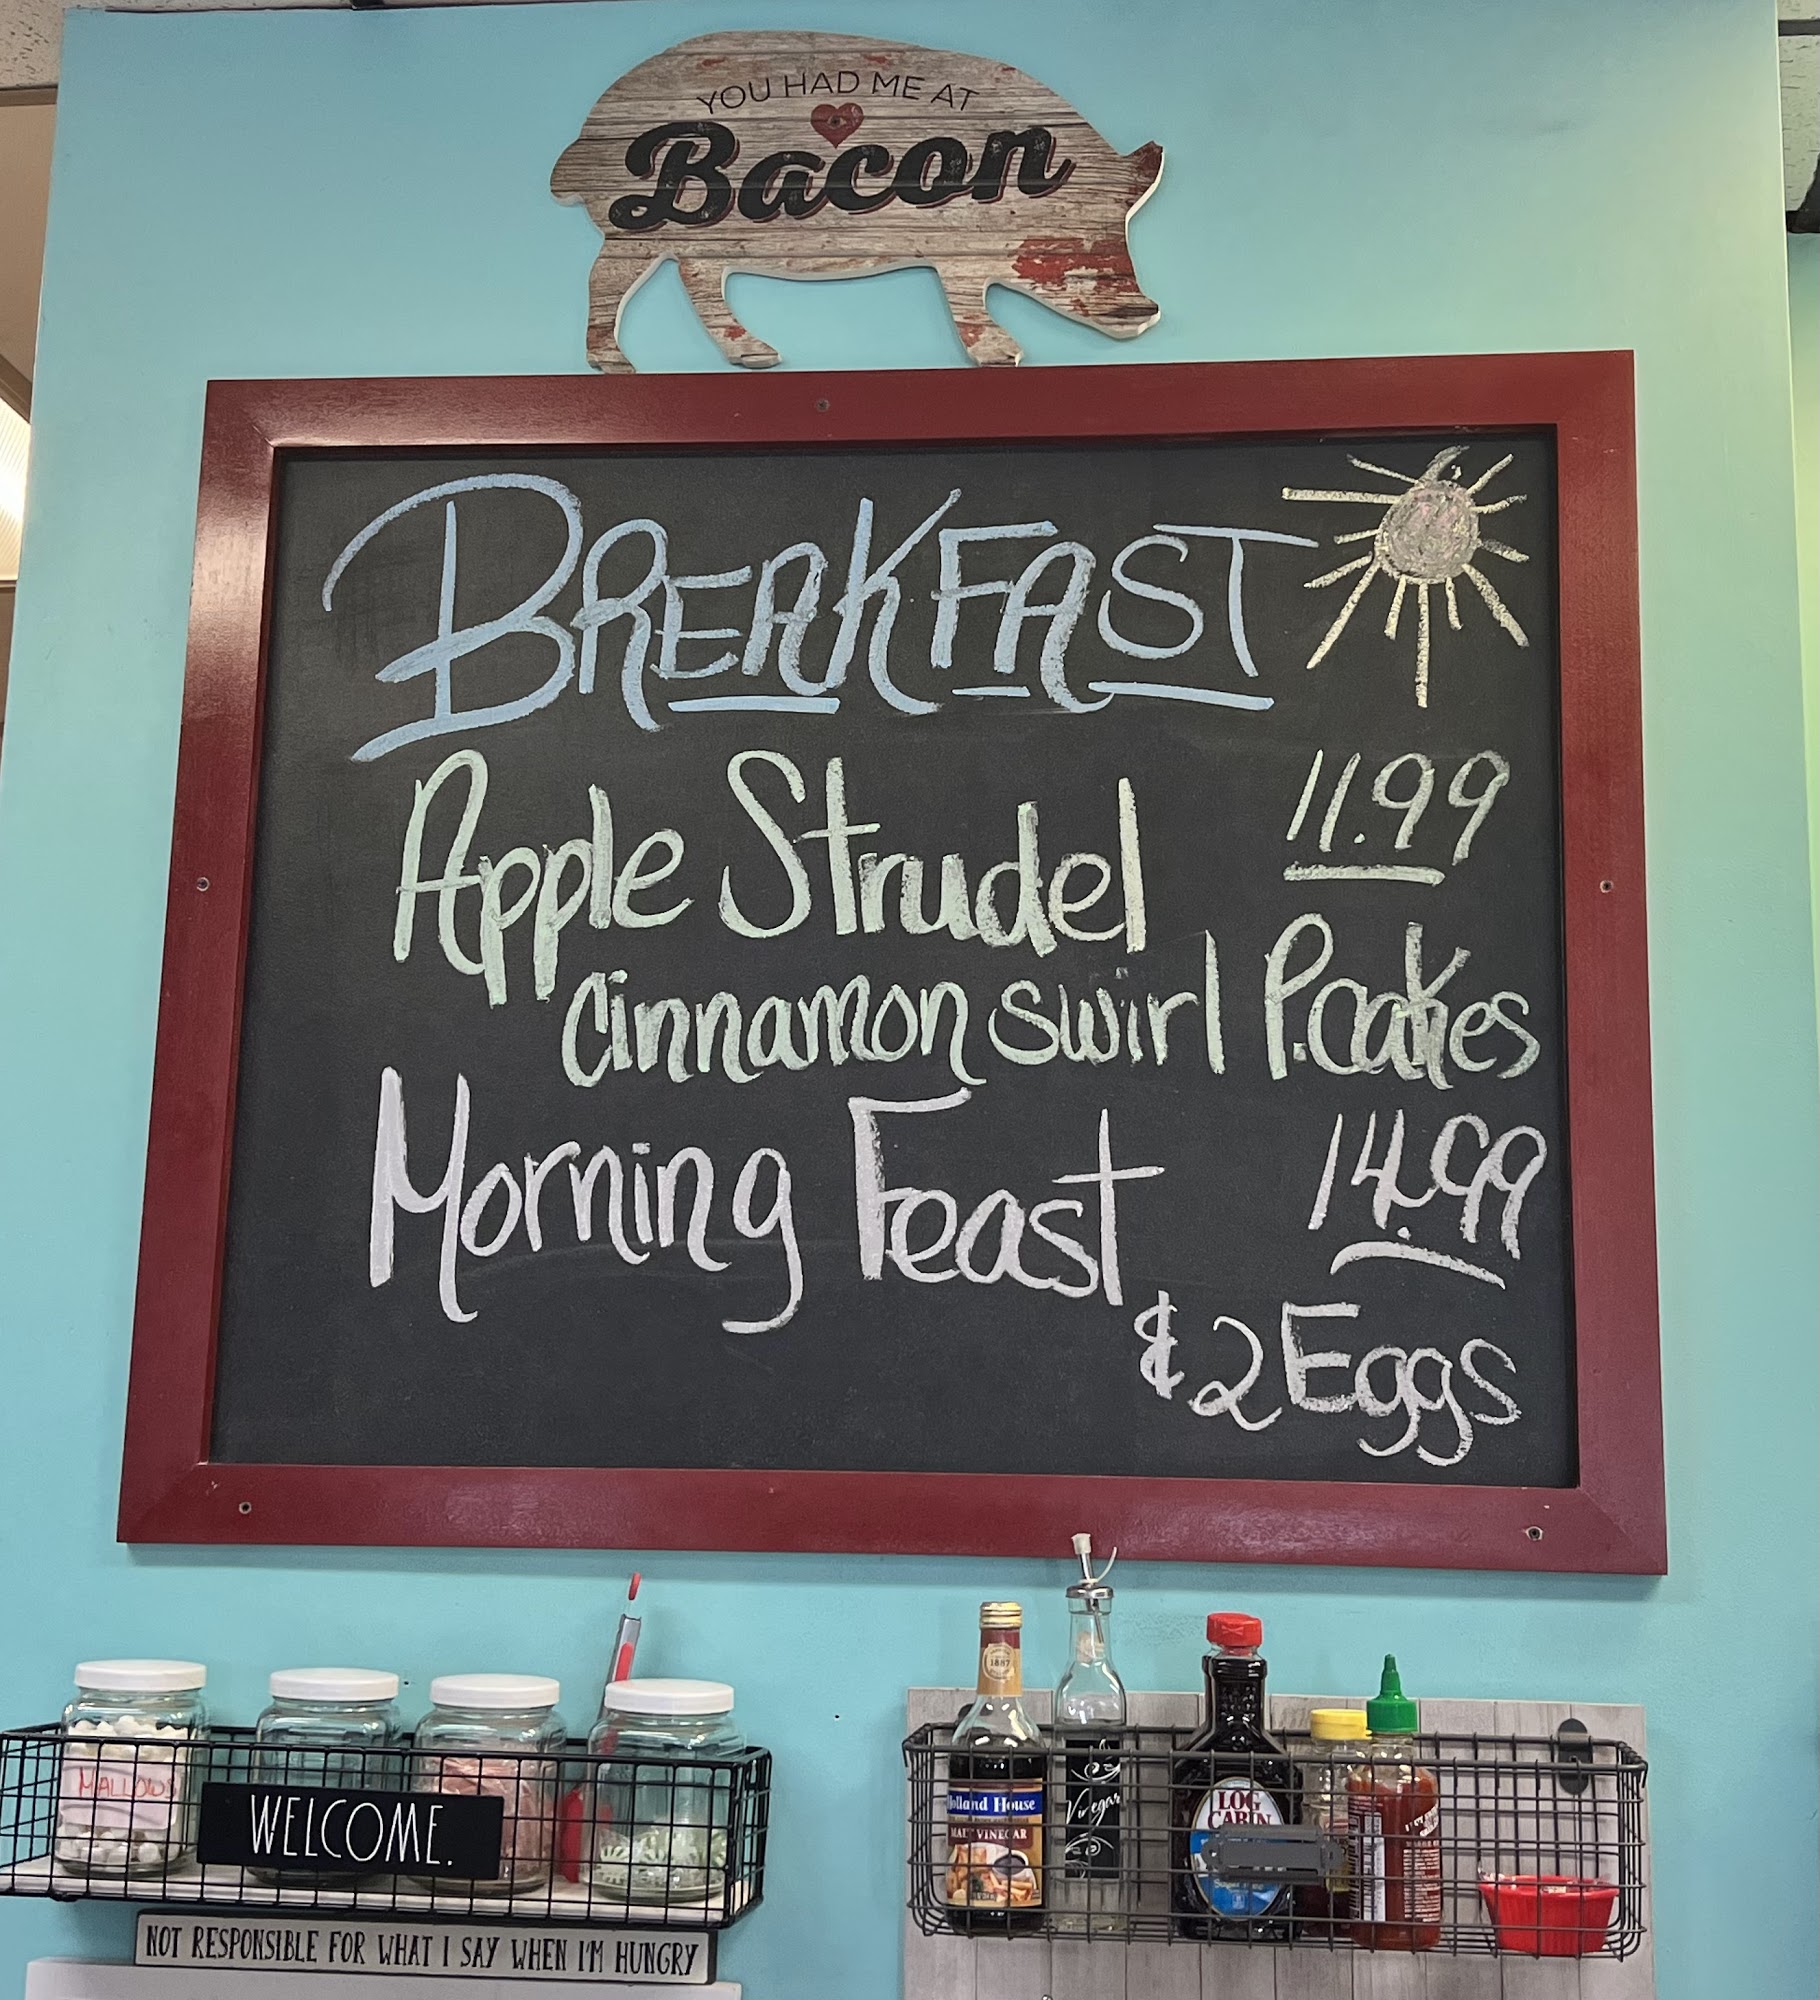 YOU HAD ME AT
Bacon
BREAKFAST
Apple Strudel 11.99
Cinnamon Swirl P.cakes
Morning Feast 14.99
& 2 Eggs
MALLOWS
WELCOME.
NOT RESPONSIBLE FOR WHAT I SAY WHEN I'M HUNGRY
1887
olland House
MALT VINEGAR
Vinegar
LOG
CABIN